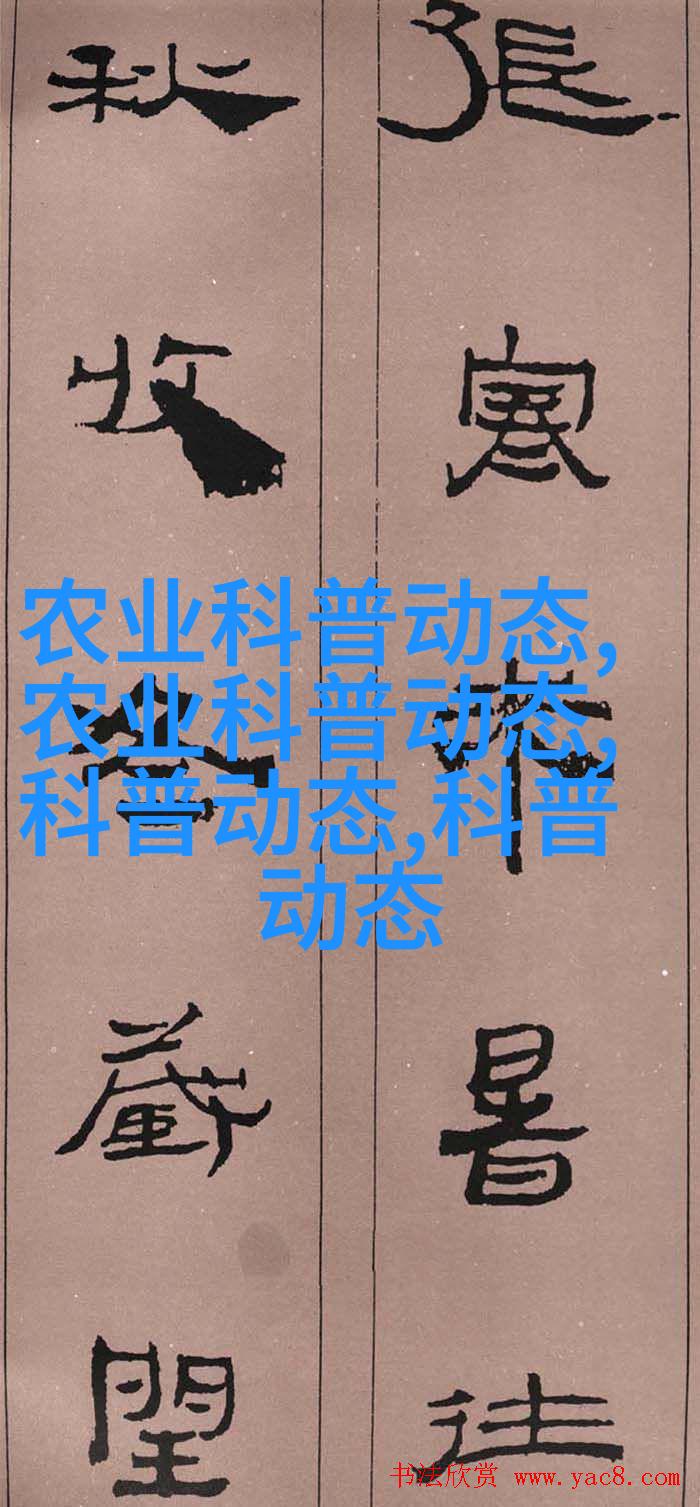 張寒来暑往
秋收冬蔵閏
农业科普动态,
农业科普动态,
科普动态,科普
动态
书法欣赏 www.yac8.com